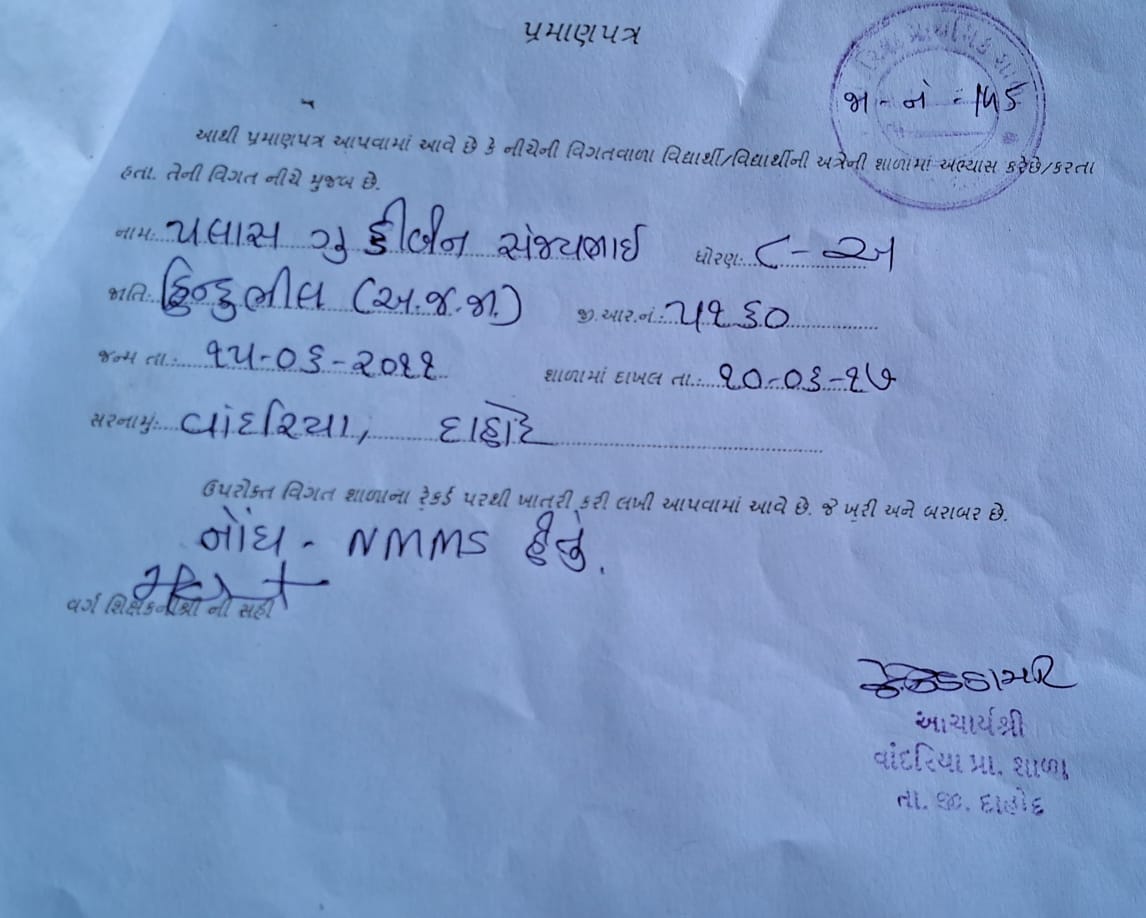 પ્રમાણપત્ર
જા - નં - ૧૫૬
આથી પ્રમાણપત્ર આપવામાં આવે છે કે નીચેની વિગતવાળા વિદ્યાર્થી/વિદ્યાર્થીની અત્રેની શાળામાં અભ્યાસ કરેછે/કરતા
હતા. તેની વિગત નીચે મુજબ છે.
નામ: પલાસ ગુડ્ડીબેન સંજયભાઇ ધોરણ: ૮-અ
જાતિ: હિન્દુ ભીલ (અ.જ.જા.) જી.આર.નં.: ૫૧૬૦
જન્મ તા.: ૧૫-૦૬-૨૦૧૧ શાળામાં દાખલ તા.: ૧૦-૦૬-૧૭
સરનામું: વાંદરિયા, દાહોદ
ઉપરોક્ત વિગત શાળાના રેકર્ડ પરથી ખાતરી કરી લખી આપવામાં આવે છે. જે ખરી અને બરાબર છે.
નોંધ - NMMS હેતુ.
વર્ગ શિક્ષકનીશ્રી ની સહી
આચાર્યશ્રી
વાંદરિયા પ્રા. શાળા
તા. જી. દાહોદ